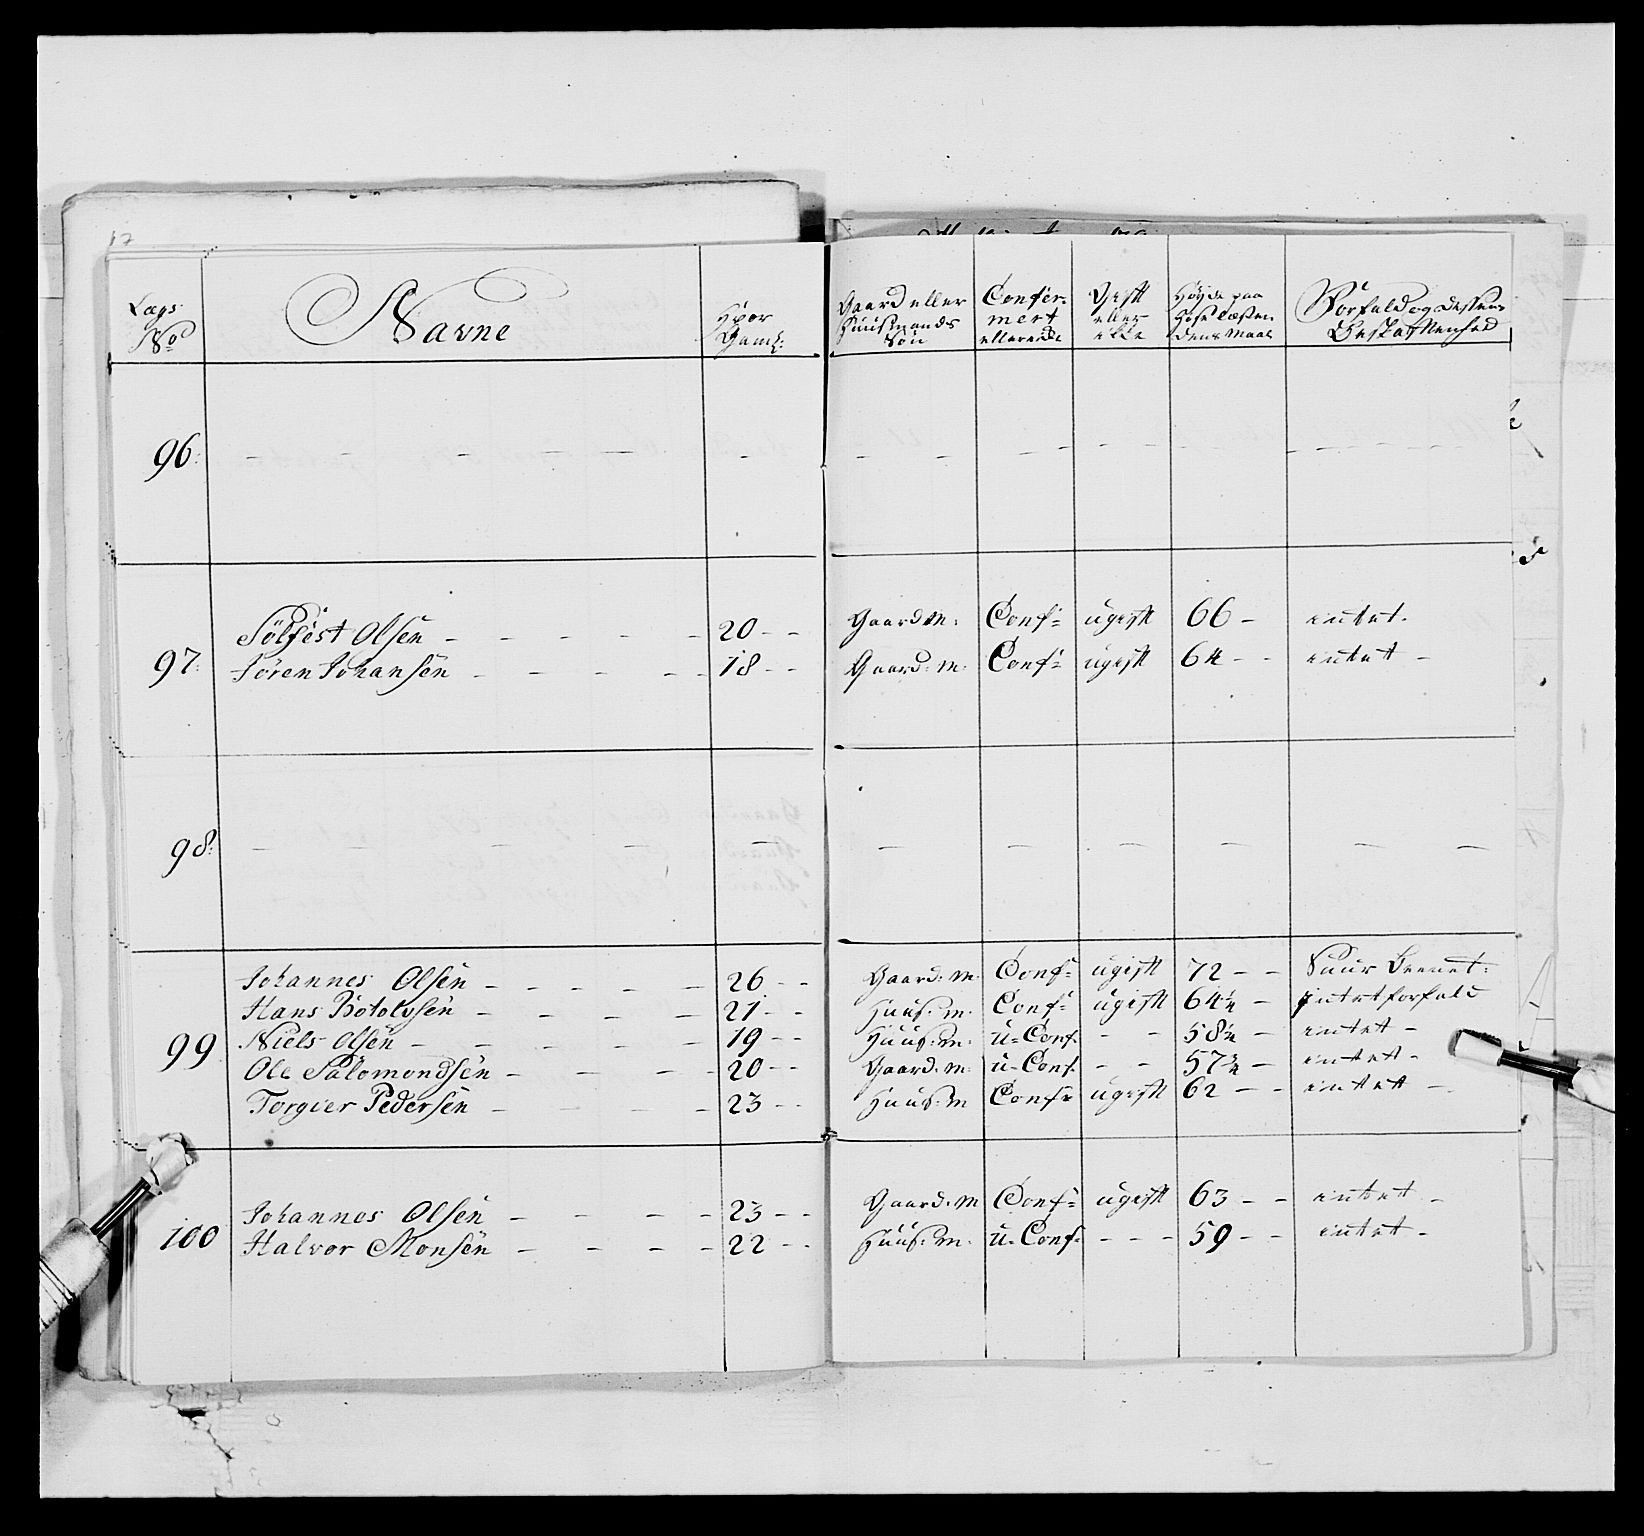 17
Lægs No | Navne | Hvor Gaml: | Gaard eller Huusmands Søn | Confirmert eller ende | Gift eller ikke | Høyde paa Hoselæsten dens Maal | Forfald og dessens Beskaffenhed
96: – – – – – – – – – – – –
Sölfest Olsen – – – – – 20 – – Gaard m: Conf: ugift 66 – intet.
97: Sören Johansen – – – – – 18 – – Gaard: m. Conf: ugift 64 – – intet –
98: – – – – – – – – – –
Johannes Olsen – – – – – 26 – – Gaard: m. Conf: ugift 72 – –
Hans Botolvsen – – – – 21 – – Huus: m. Conf: ugift 64¼ – intet forfald
99 Niels Olsen – – – – – 19 – – Huus: m. u-Conf. – – 58¼ – intet –
Ole Salomondsen – – – – 20 – – Gaard: m. u-Conf. – – 57¾ – intet –
Torgier Pedersen – – – – 23 – – Huus: m Conf: ugift 62 – – intet –
Johannes Olsen – – – – 23 – – Gaard: m Conf: ugift 63 – – intet –
100 Halvor Monsen – – – – 22 – – Huus: m. u-Conf. – – – 59 – – intet –